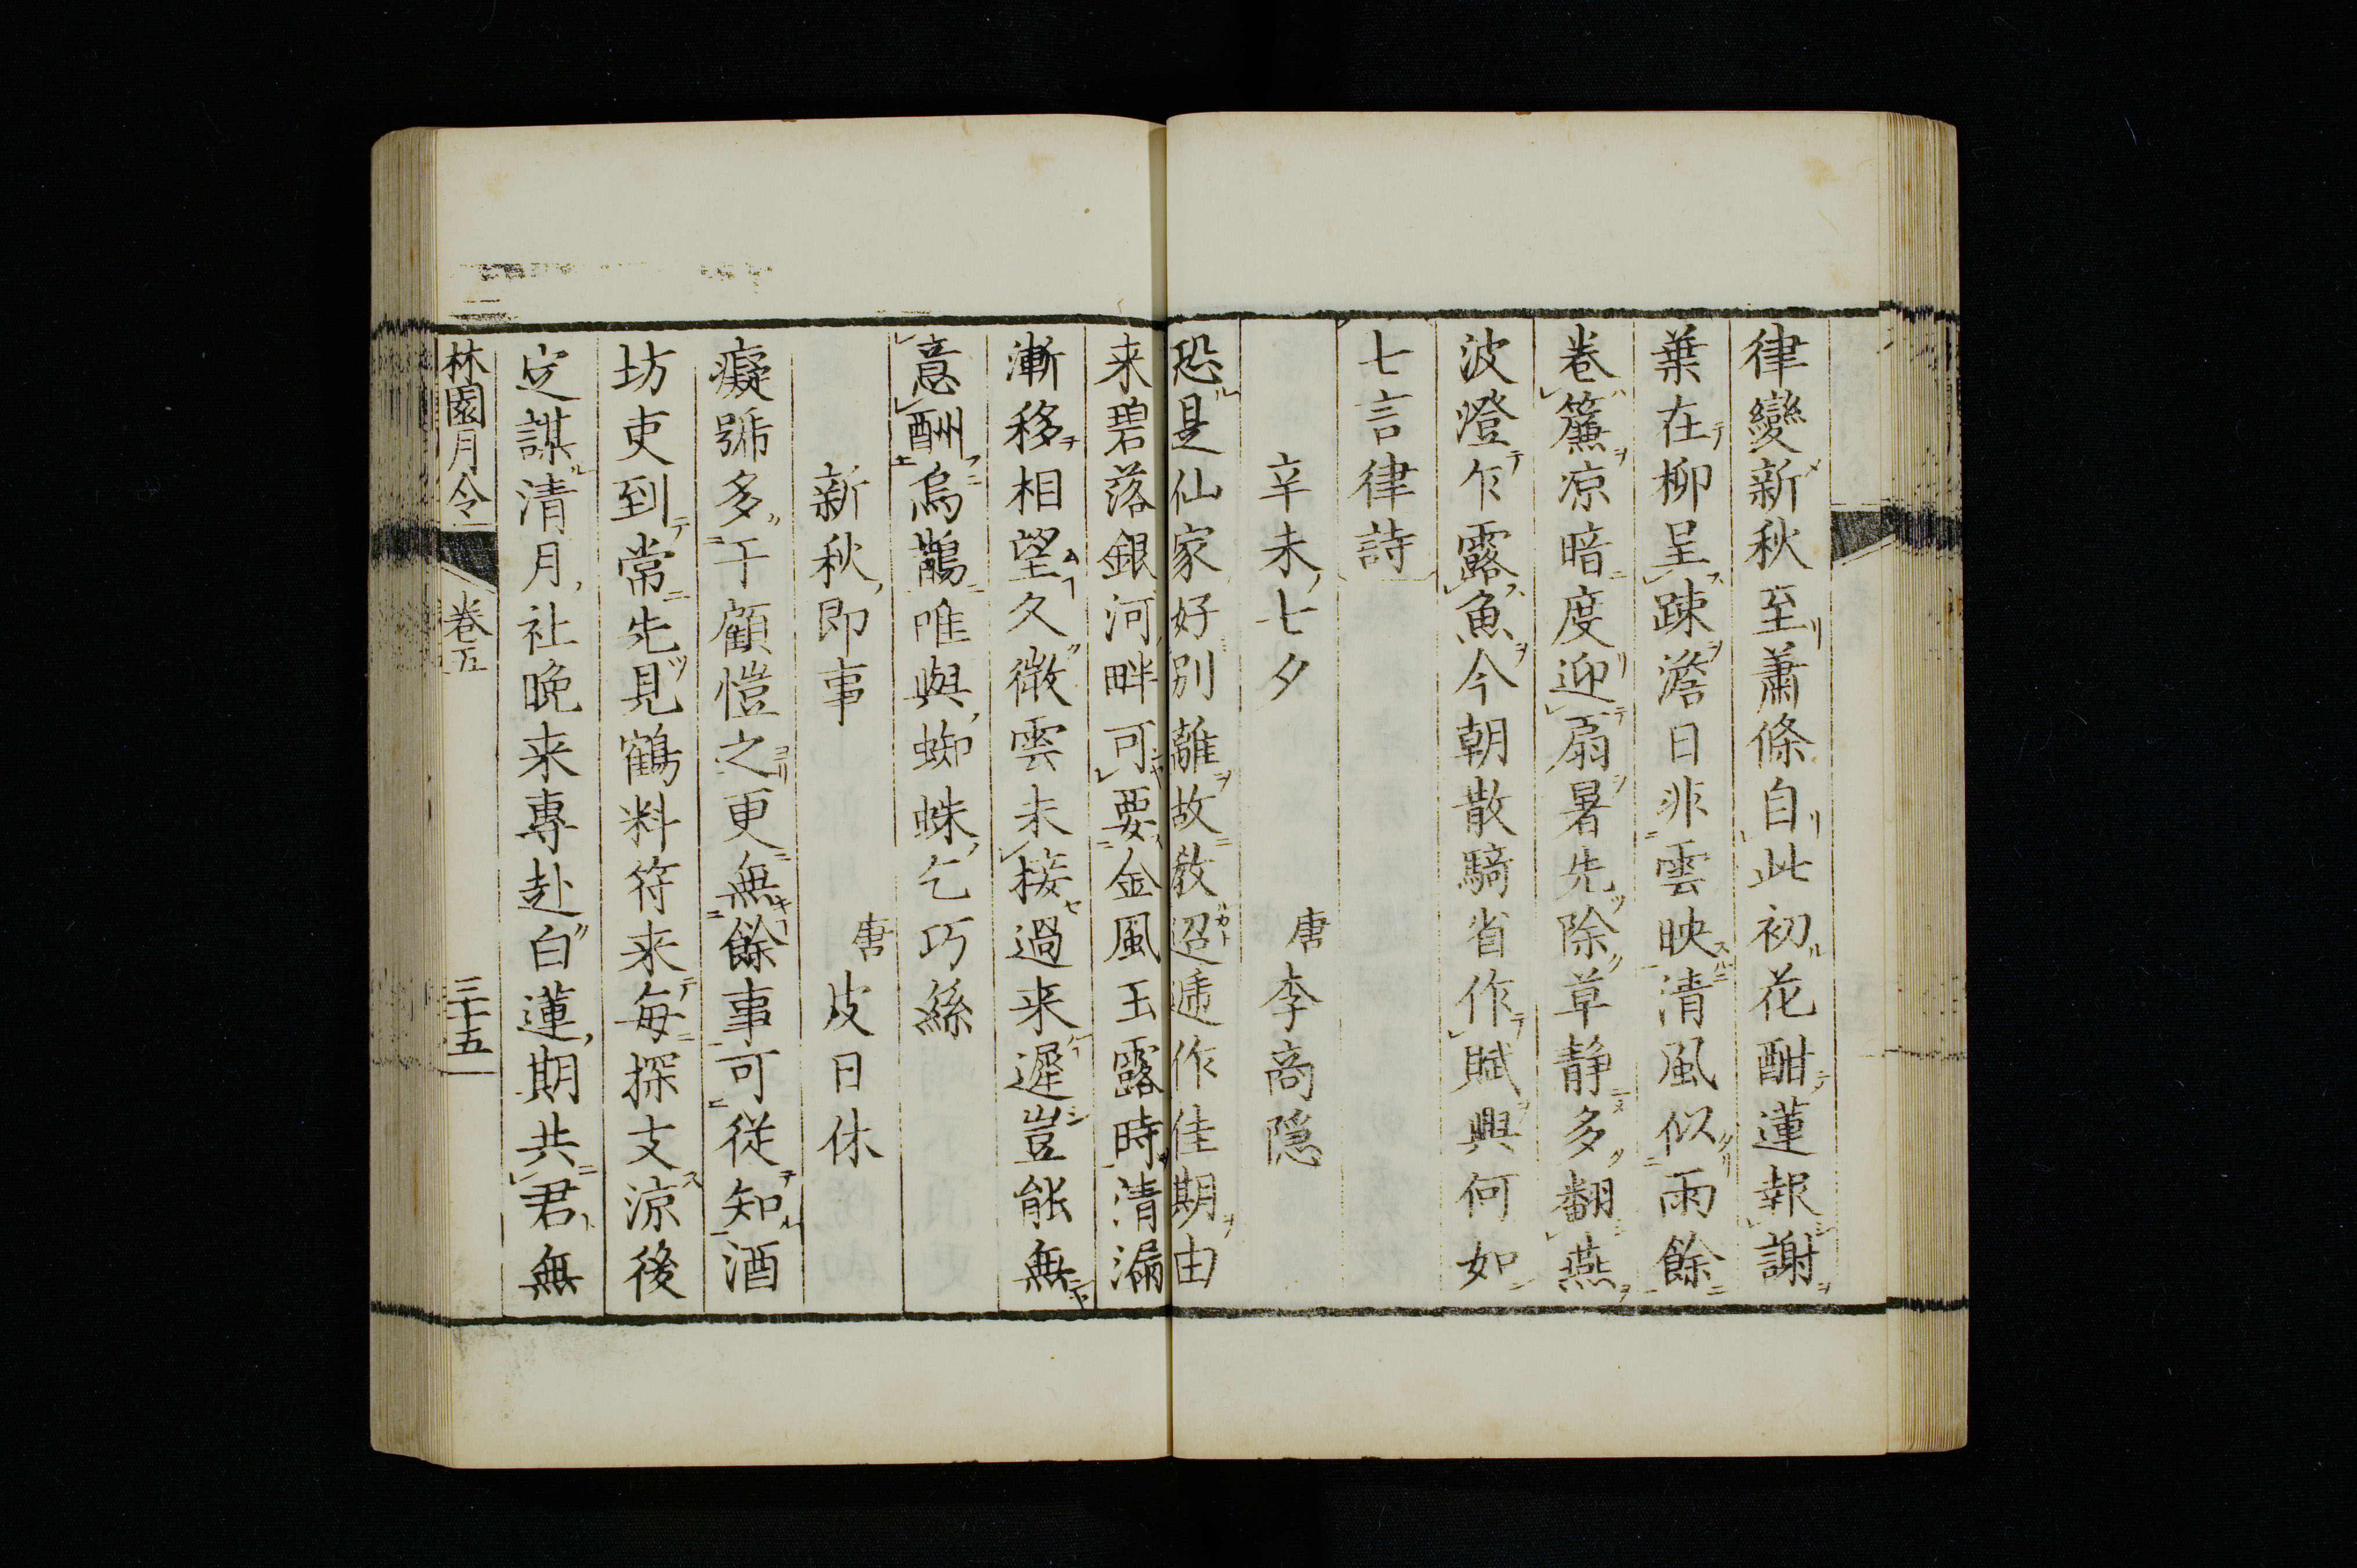 律變新秋至蕭條自此初花酣蓮報謝
葉在柳呈踈澹日非雲映清風似雨餘
卷簾凉暗度迎扇暑先除草静多翻燕
波澄乍露魚今朝散騎省作賦興何如
七言律詩
辛未七夕 唐李商隠
恐是仙家好別離故教迢遞作佳期由
来碧落銀河畔可要金風玉露時清漏
漸移相望久微雲未接過来遲豈能無
意酬烏鵲唯與蜘蛛乞巧絲
新秋即事 唐皮日休
癡號多于顧愷之更無餘事可從知酒
坊吏到常先見鶴料符来每探支涼後
定謀清月社晩来專赴白蓮期共君無
林園月令 卷五 三十五